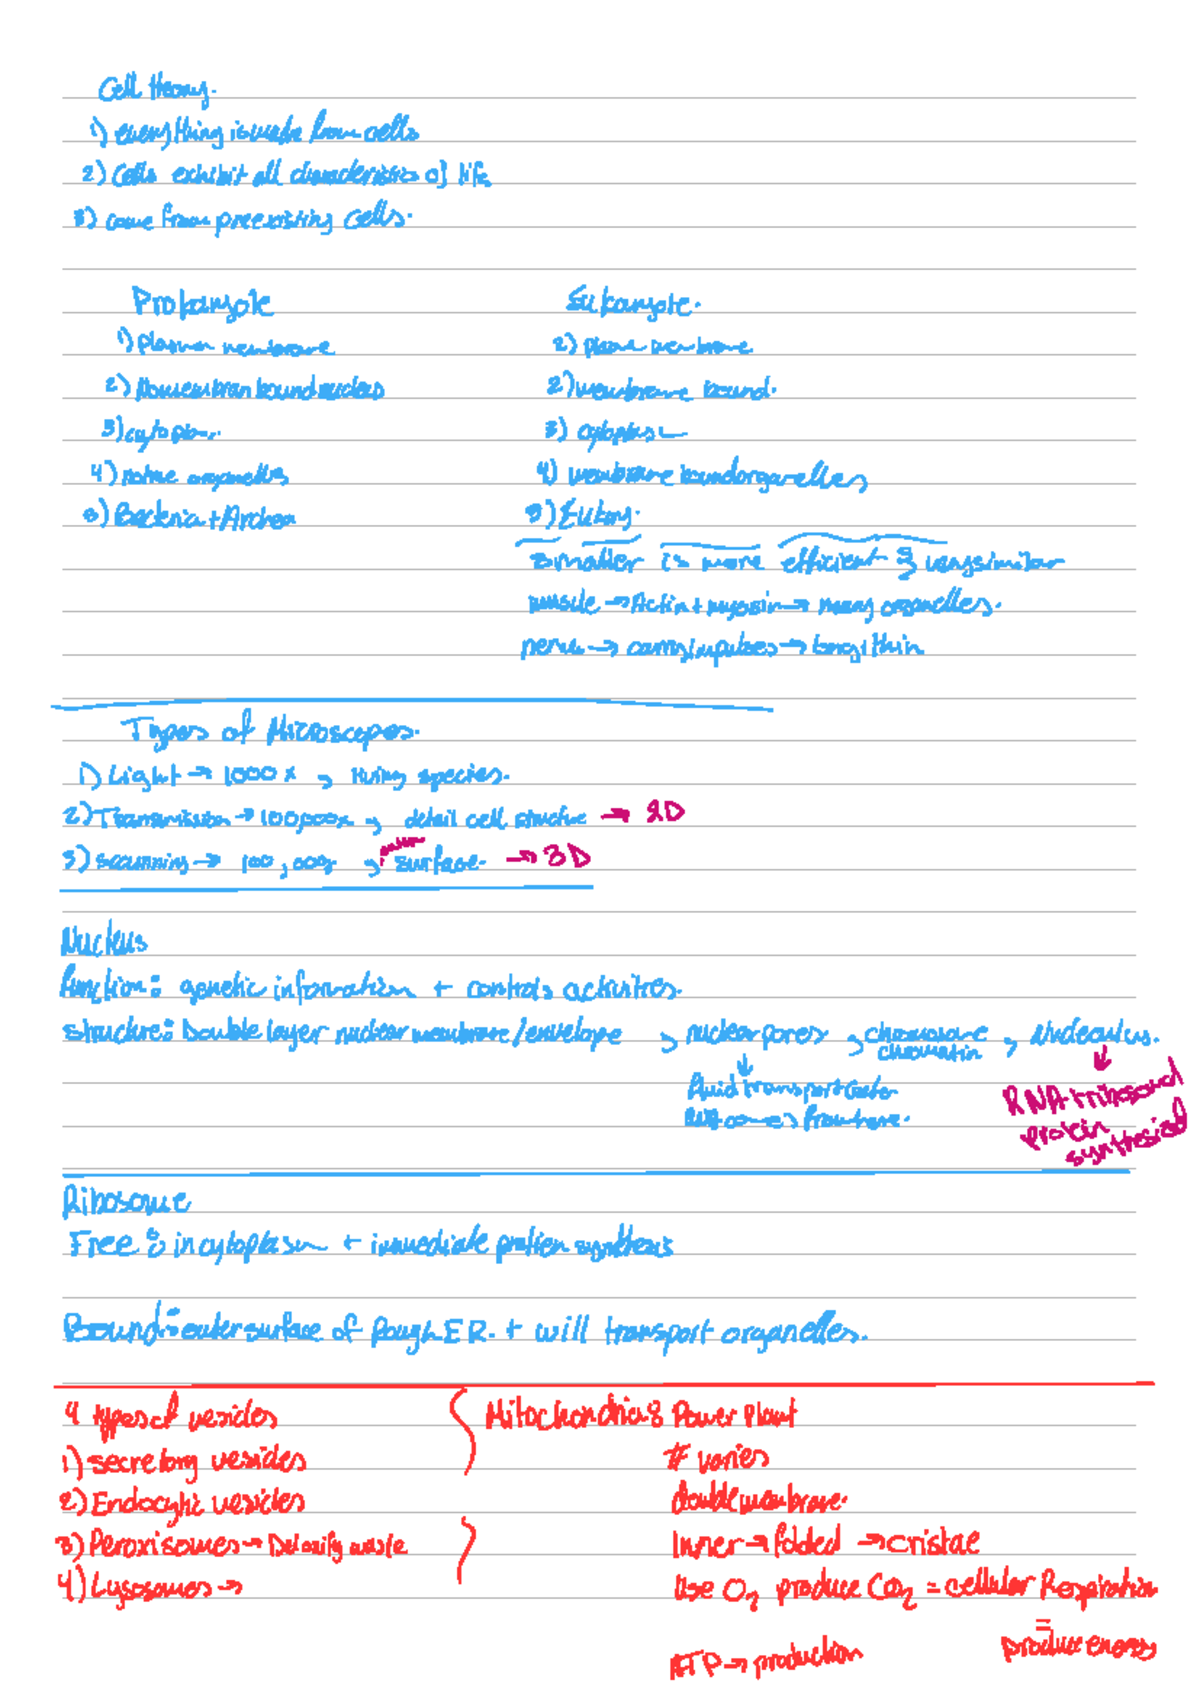 Cell theory.
1) everything is made from cells
2) Cells exhibit all characteristics of life
3) come from preexisting cells.
Prokaryote
1) plasma membrane
2) Nomembran bound nucleus
3) cytoplasm.
4) no mem organelles
5) Bacteria + Archea
Eukaryote.
2) plasma membrane
2) membrane bound.
3) cytoplasm
4) membrane bound organelles
5) Eukary.
smaller is more efficient & very similar
muscle → Actin + myosin → many organelles.
nerve → carry impulses → long, thin
Types of Microscopes.
1) Light → 1000 x , living species.
2) Transmission → 100,000x , detail cell structure → 2D
3) scanning → 100,000x , surface. → 3D
Nucleus
function: genetic information + controls activities.
structure: Double layer nuclear membrane/envelope , nuclear pores , chromosome , Nucleoulus.
chromatin
↓ fluid transport
RNA comes from here.
↓ RNA + ribosomal
protein
synthesized
Ribosome
Free: in cytoplasm + immediate protien synthesis
Bound: outer surface of Rough ER. + will transport organelles.
4 types of vesicles
1) secretory vesicles
2) Endocytic vesicles
3) Peroxisomes → Detoxify waste
4) Lysosomes →
Mitochondria: Power Plant
# varies
double membrane.
Inner → folded → cristae
Use O2 produce CO2 = cellular Respiration
=
produce energy
ATP → production